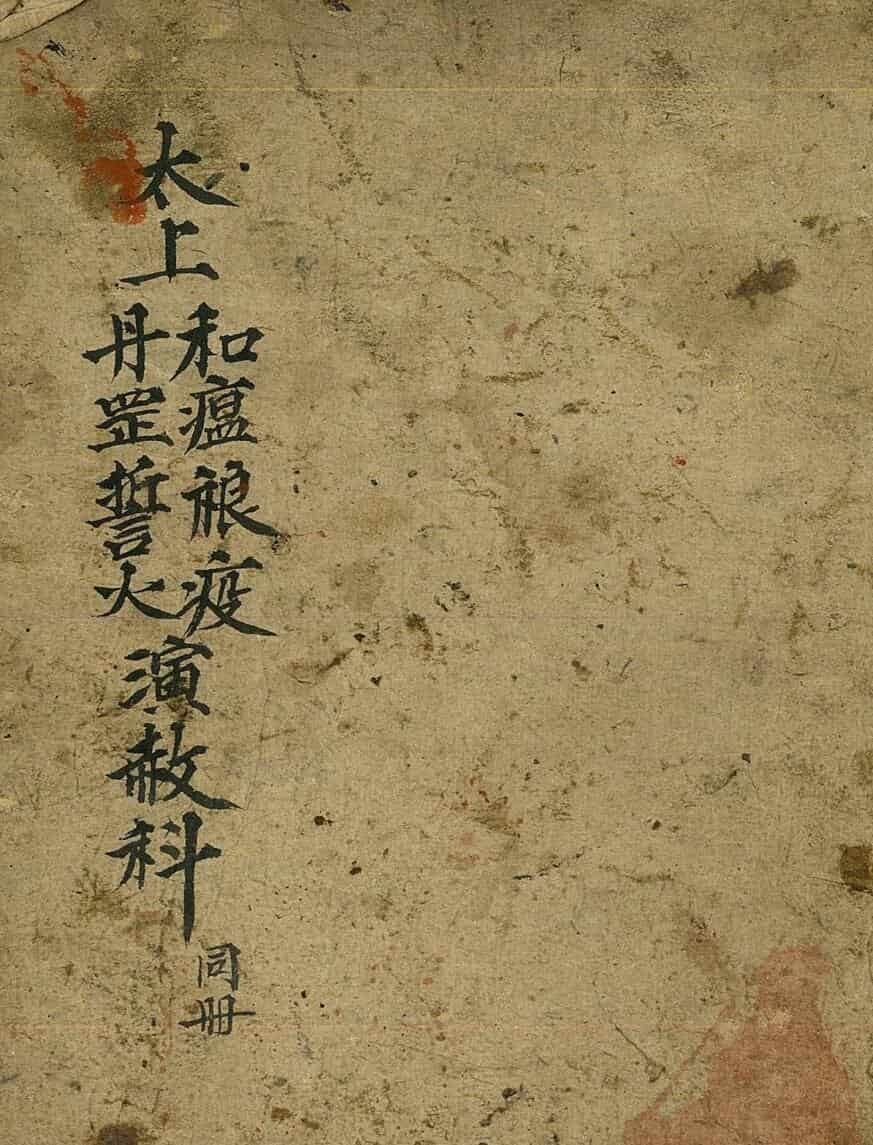 太上
和瘟䘙疫
丹罡誓火
演赦科
同册